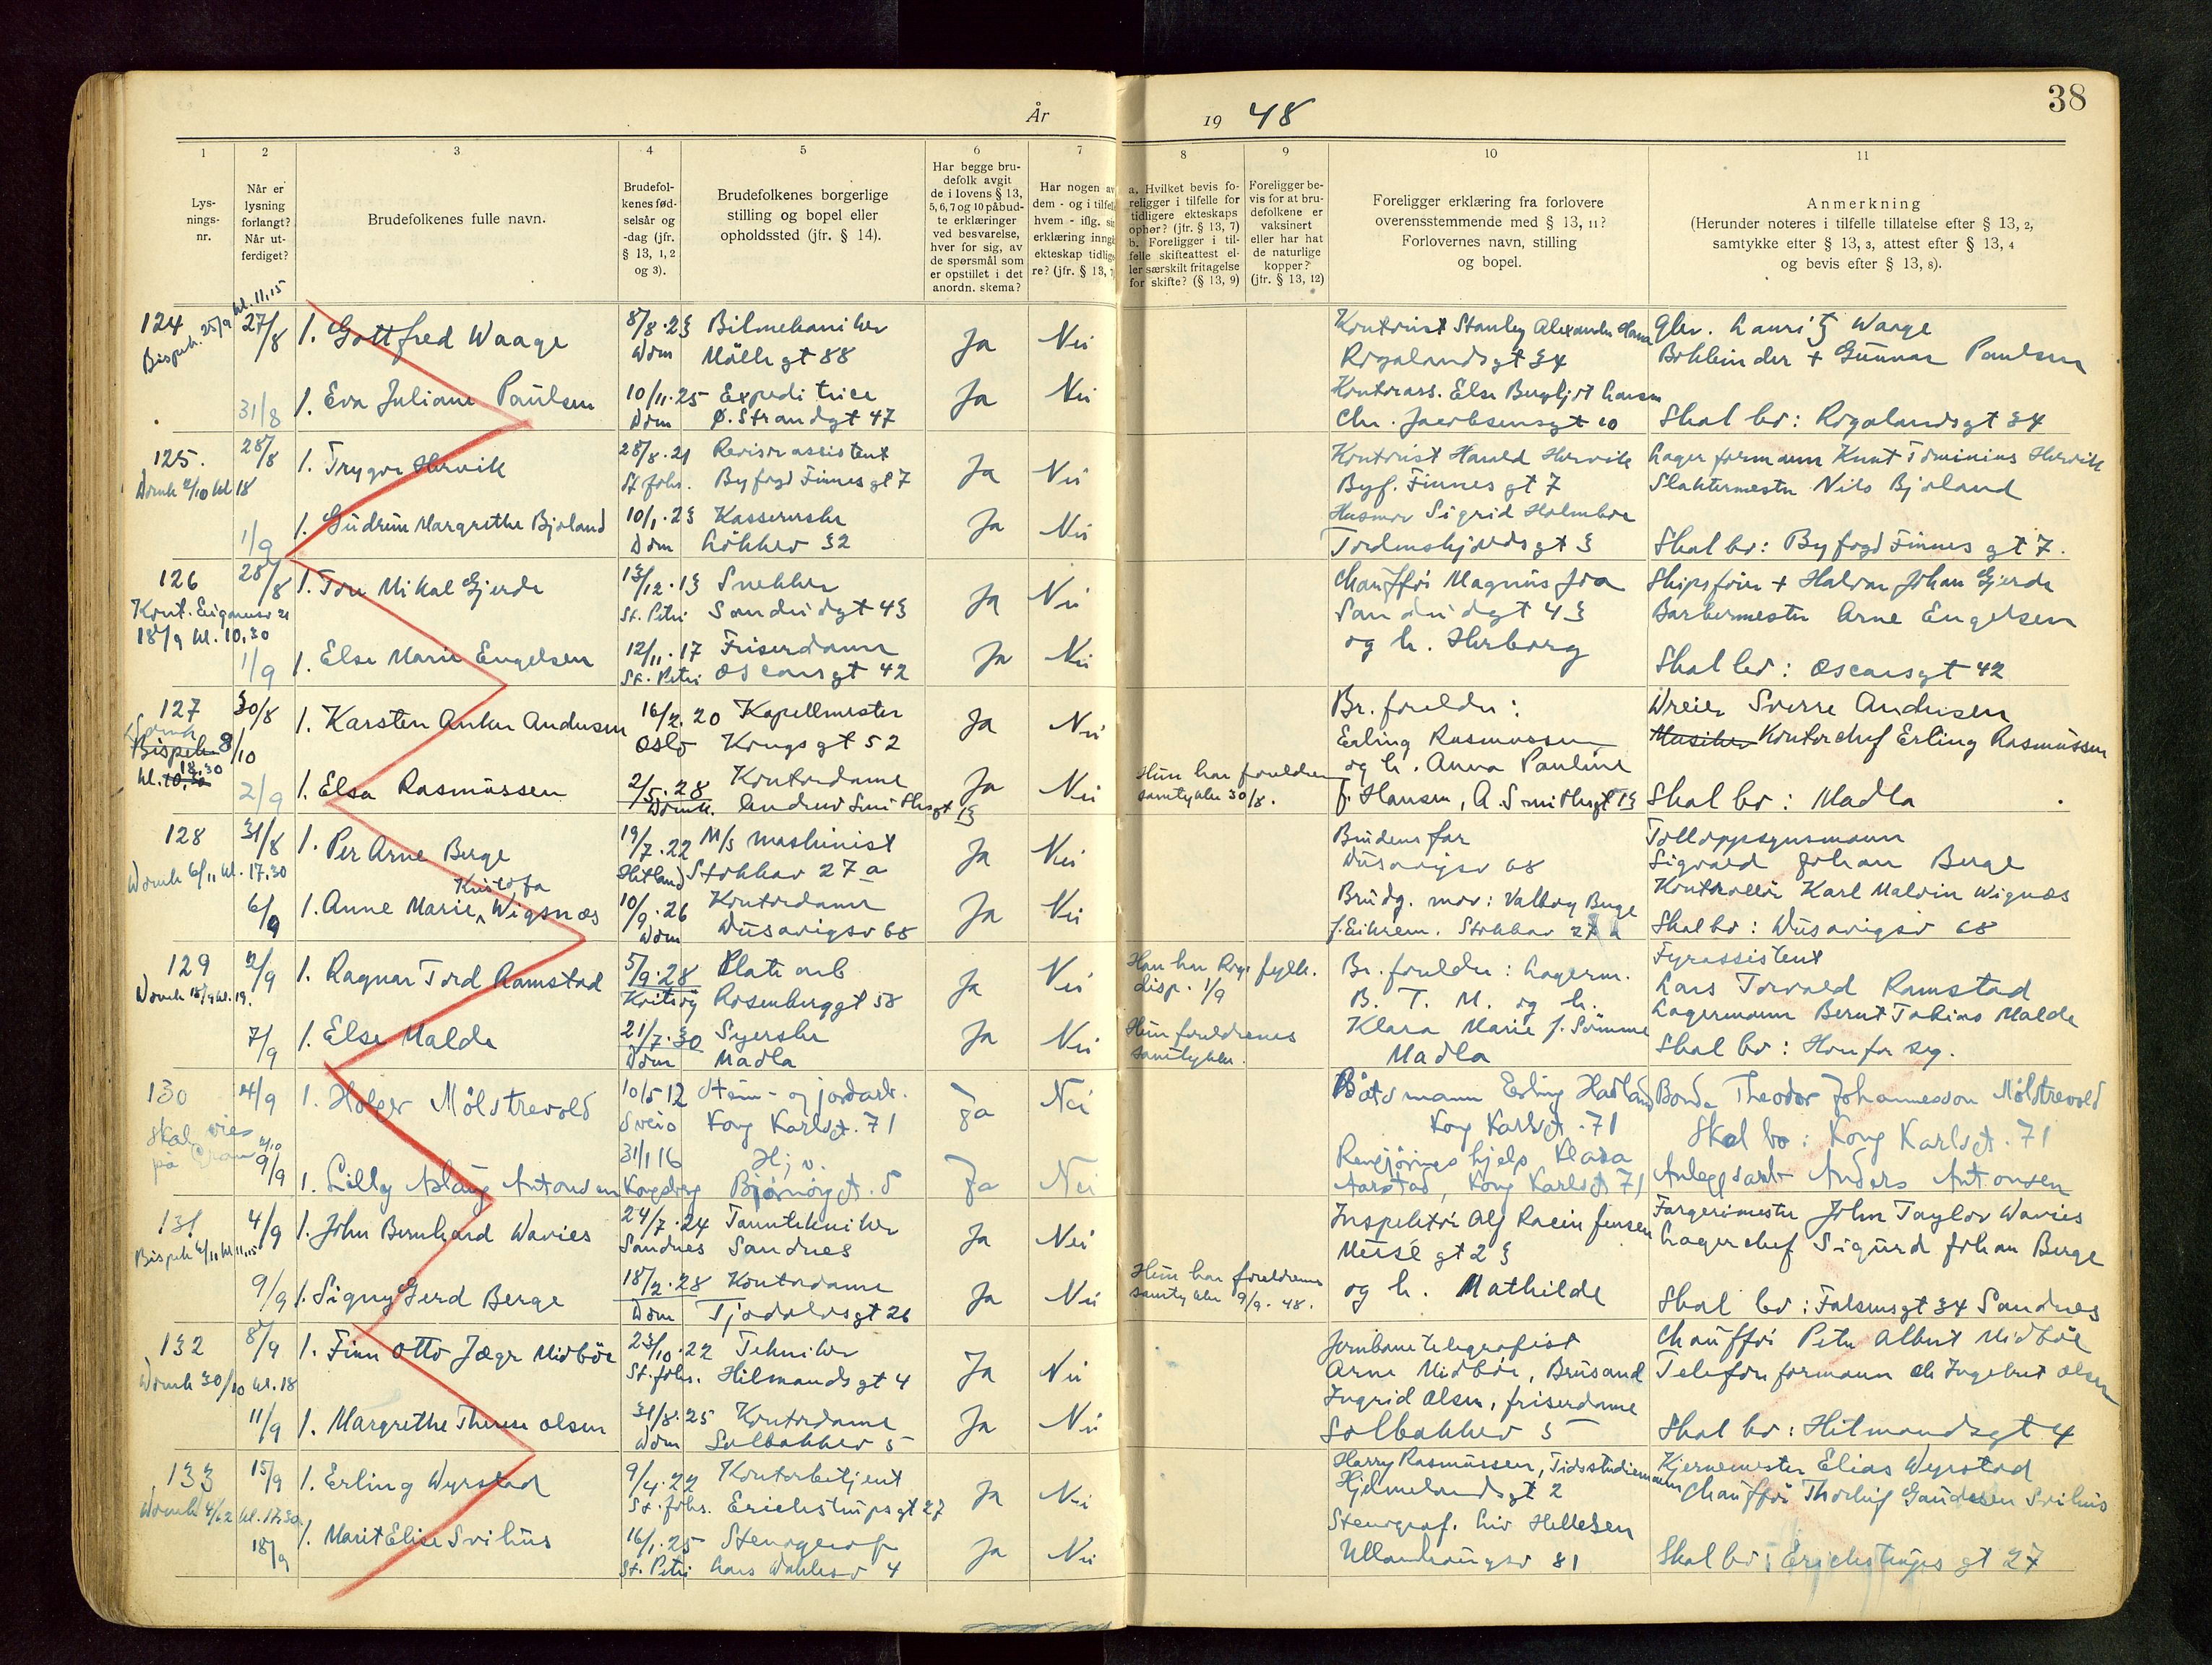 38
År 19 48
1 2 3 4 5 6 7 8 9 10 11
Lys-
nings-
nr.
Når er
lysning
forlangt?
Når ut-
ferdiget?
Brudefolkenes fulle navn.
Brudefol-
kenes fød-
selsår og
-dag (jfr.
§ 13, 1, 2
og 3).
Brudefolkenes borgerlige
stilling og bopel eller
opholdssted (jfr. § 14).
Har begge bru-
defolk avgit
de i lovens § 13,
5, 6, 7 og 10 påbud-
te erklæringer
ved besvarelse,
hver for sig, av
de spørsmål som
er opstillet i det
anordn. skema?
Har nogen av
dem - og i tilfelle
hvem - iflg. sin
erklæring inngått
ekteskap tidlige-
re? (jfr. § 13, 7)
a. Hvilket bevis fo-
religger i tilfelle for
tidligere ekteskaps
ophør? (jfr. § 13, 7)
b. Foreligger i til-
felle skifteattest el-
ler særskilt fritagelse
for skifte? (§ 13, 9)
Foreligger be-
vis for at bru-
defolkene er
vaksinert
eller har hat
de naturlige
kopper?
(jfr. § 13, 12)
Foreligger erklæring fra forlovere
overensstemmende med § 13, 11?
Forlovernes navn, stilling
og bopel.
Anmerkning
(Herunder noteres i tilfelle tillatelse efter § 13, 2,
samtykke efter § 13, 3, attest efter § 13, 4
og bevis efter § 13, 8).
124 27/8 1. Gottfred Waage 8/8.23 Bilmekaniker Ja Nei Kontorist Stanley Alexander
Bispek. 25/9 kl. 11,15 Dom Mölle gt 88 Rogalandsgt 34 Bokbinder + Gunnar Paulsen
Lauritz Waage
31/8 1. Eva Juliane Paulsen 10/11.25 Expeditrice Ja Nei Kontorass. Else Bergljot Larsen
Dom Ø. Strandgt 47 Chr. Jacobsensgt 10 Skal bo: Rogalandsgt 34
125. 28/8 1. Trygve Hervik 28/8.21 Revisorassistent Ja Nei Kontorist Harald Hervik Lagerformann Knut Tominius Hervik
Domk 2/10 kl 18 St Johs. Byfogd Finnesgt 7 Byf. Finnes gt 7 Slaktermester Nils Bjoland
1/9 1. Gudrun Margrethe Bjoland 10/1.23 Kassererske Ja Nei Husmor Sigrid Holmboe
Dom Løkkev 32 Tordenskjoldsgt 3 Skal bo: Byfogd Finnes gt 7.
126 28/8 1. Tore Mikal Gjerde 13/12.13 Snekker Ja Nei Chauffør Magnus Joa Skipsfører + Halvor Johan Gjerde
Kont. Eiganesv 21 St. Petri Sandeidgt 43 Sandeidgt 43 Barbermester Arne Engelsen
18/9 kl. 10,30 og h. Herborg
1/9 1. Else Marie Engelsen 12/11.17 Friserdame Ja Nei
St. Petri Oscarsgt 42 Skal bo: Oscarsgt 42
127 30/8 1. Karsten Anker Andersen 16/2.20 Kapellmester Ja Nei Br. foreldre: Dreier Sverre Andersen
Domk Bispek 8/10 Oslo Kongsgt 52 Erling Rasmussen Musiker Kontorchef Erling Rasmussen
kl. 10,30 18.30 og h. Anna Pauline
2/9 1. Elsa Rasmussen 2/5.28 Kontordame Ja Nei Hun har foreldrenes f. Hansen, A. Smithsgt 13 Skal bo: Madla
Domk. Andreas Smithsgt 13 samtykke 30/8.
128 31/8 1. Per Arne Berge 19/7.22 M/S maskinist Ja Nei Brudens far Tolloppsynsmann
Domk 6/11 kl. 17.30 Hetland Stokkav 27 a Dusavigsv 68 Sigvald Johan Berge
6/9 1. Anne Marie Kristofa Wigsnæs 10/9.26 Kontordame Ja Nei Brudg. mor: Valborg Berge Kontrollør Karl Malvin Wignæs
Dom Dusavigsv 68 f. Eikrem. Stokkav 27 a Skal bo: Dusavigsv 68
129 2/9 1. Ragnar Tord Ramstad 5/9.28 Platearb Ja Nei Han har Roga fylk. Br. foreldre: Lagerm. Fyrassistent
Domk 18/9 kl. 19. Kvitsöy Rosenberggt 58 disp. 1/9 B. T. M. og h. Lars Torvald Ramstad
7/9 1. Else Malde 21/7.30 Syerske Ja Nei Hun foreldrenes Klara Marie f. Sömme Lagermann Bernt Tobias Malde
Dom Madla samtykke. Madla Skal bo: Hver for seg.
130 4/9 1. Holger Mölstrevold 10/5 12 Stein- og jordarb. Ja Nei Båtsmann Erling Hadland Bonde Theodor Johannesson Mölstrevold
Skal vies Sveio Kong Karlsgt. 71 Kong Karlsgt. 71 Skal bo: Kong Karlsgt. 71
på Gran 2/10 9/9 1. Lilly Aslaug Antonsen 31/1 16 Hj. v. Ja Nei Rengjöringshjelp Klara
Kongsberg Bjørnøygt. 5 Aarstad, Kong Karlsgt 71 Anleggsarb Anders Antonsen
131 4/9 1. John Bernhard Davies 24/7.24 Tanntekniker Ja Nei Inspektør Alf Racin Jensen Fargerimester John Taylor Davies
Bispek 6/11 kl 11,15 Sandnes Sandnes Musé gt 23 Lagerchef Sigurd Johan Berge
9/9 1. Signy Gerd Berge 18/2.28 Kontordame Ja Nei Hun har foreldrenes og h. Mathilde
Dom Tjodolvsgt 26 samtykke 9/9.48. Skal bo: Falsensgt 34 Sandnes
132 8/9 1. Finn Otto Jæger Midböe 23/10.22 Tekniker Ja Nei Jernbanetelegrafist Chauffør Peter Albert Midböe
Domk 30/10 kl. 18 St. Johs. Hilmandsgt 4 Arne Midböe, Brusand Telefonformann Ole Ingebret Olsen
11/9 1. Margrethe Therese Olsen 31/8.25 Kontordame Ja Nei Ingrid Olsen, friserdame
Dom Solbakkev 5 Solbakkev 5 Skal bo: Hilmandsgt 4
133 15/9 1. Erling Wyrstad 9/4.22 Kontorbetjent Ja Nei Harry Rasmussen, Tidsstudiemann Kjernemester Elias Wyrstad
Domk 4/12 kl. 17.30. St. Johs. Erichstrupsgt 27 Hjelmelandsgt 2 Chauffør Thorleif Gaudesen Svihus
18/9 1. Marit Elise Svihus 16/1.25 Stenograf Ja Nei Stenograf. Liv Hellesen
St. Petri Lars Dahlesv 4 Ullandhaugsv 81 Skal bo: Erichstrups gt 27